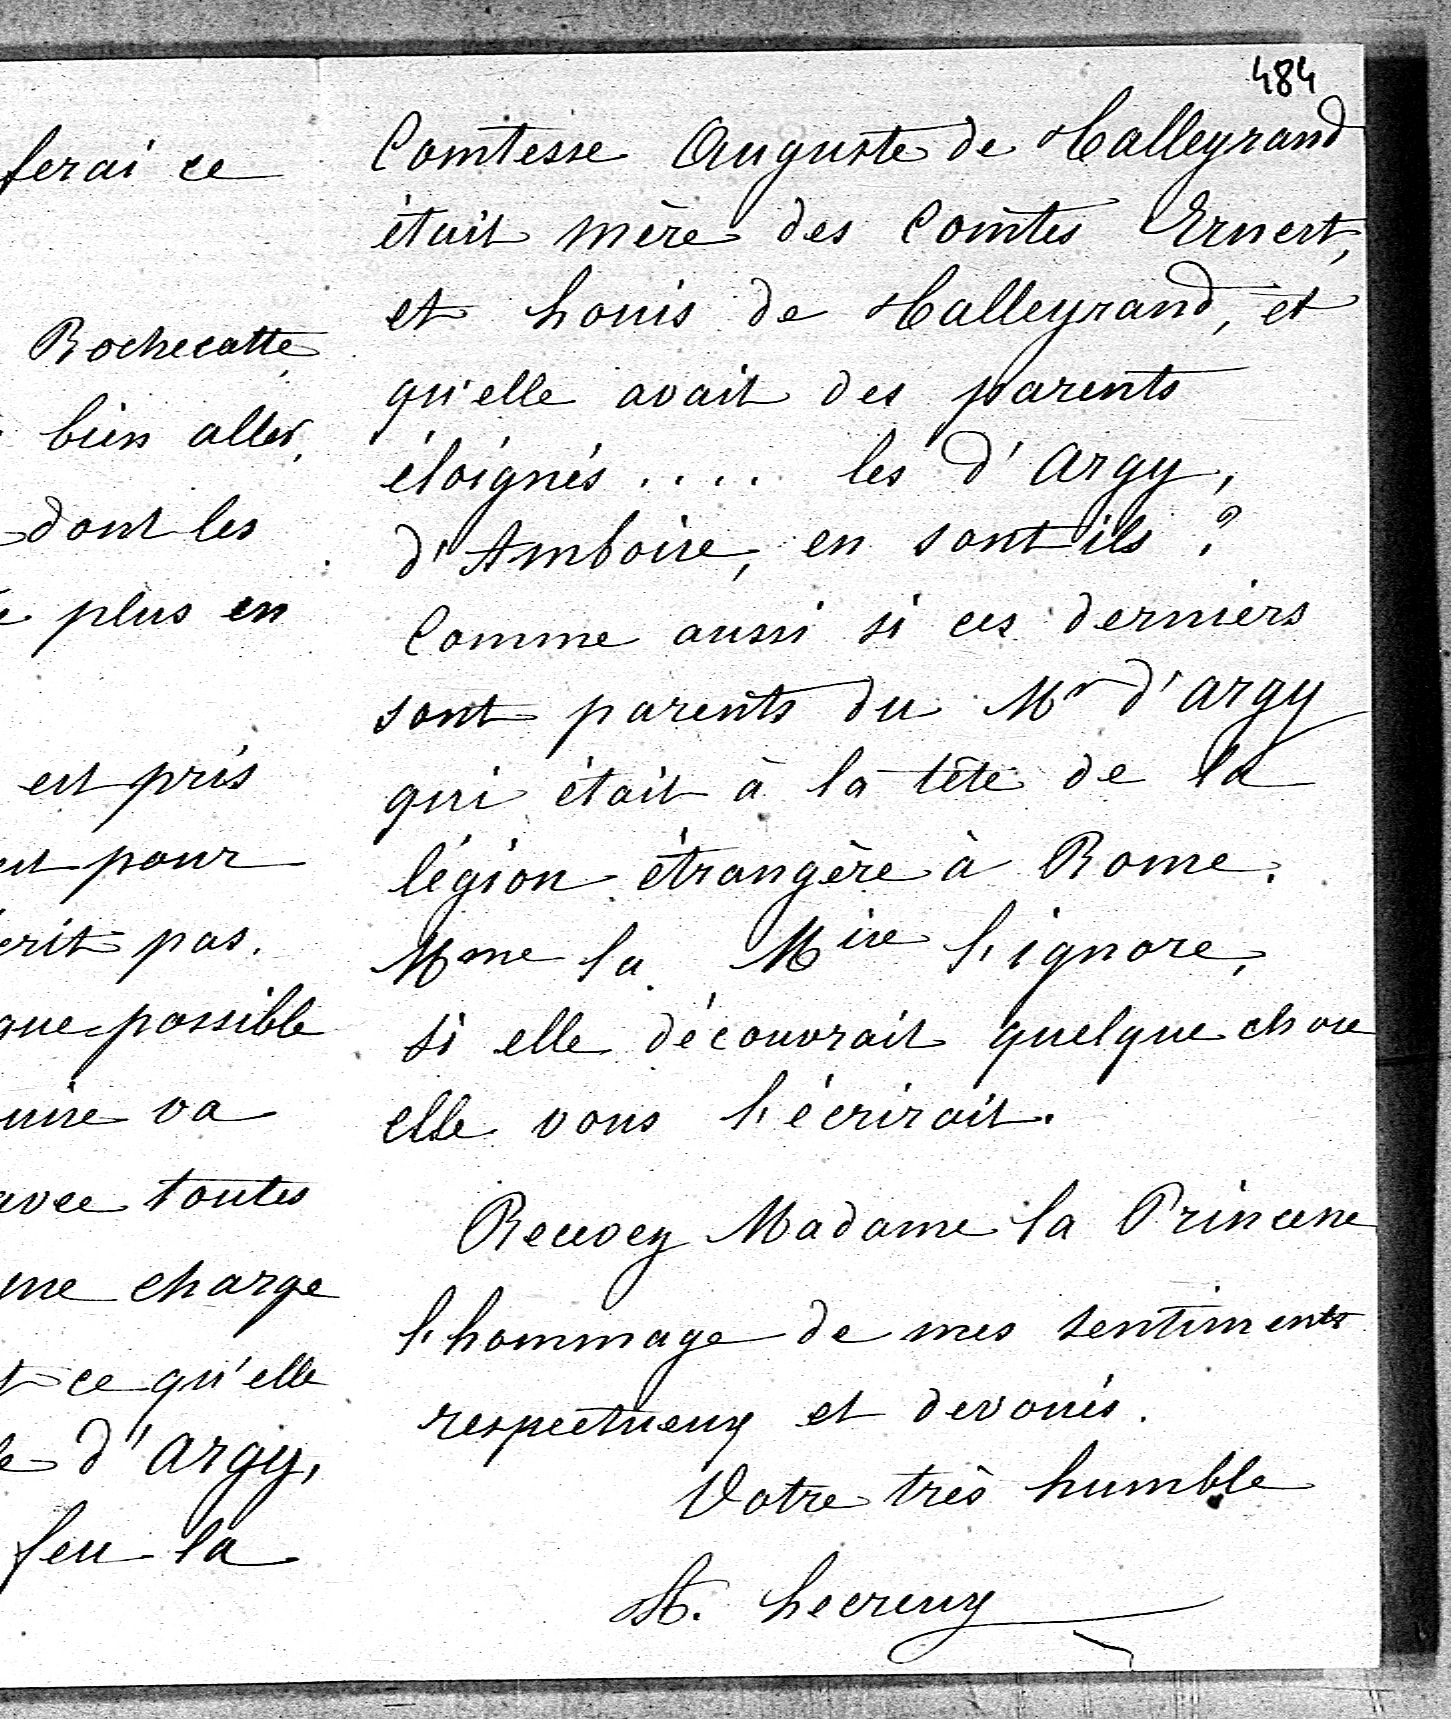 ferai ce
Rochecotte
bien aller,
dont les
plus en
est pris
pour
pas.
que possible
va
avec toutes
me charge
ce qu'elle
d'Argy,
feu la
484
Comtesse Auguste de Talleyrand
était mère des Comtes Ernest,
et Louis de Talleyrand, et
qu'elle avait des parents
éloignés .... les d'Argy,
d'Amboise, en sont ils ?
Comme aussi si ces derniers
sont parents du Mr d'Argy
qui était à la tête de la
légion étrangère à Rome.
Mme la Mise l'ignore,
si elle découvrait quelque chose
elle vous l'écrirait.
Recevez Madame la Princesse
l'hommage de mes sentiments
respectueux et devoués.
Votre très humble
A. Lecreux